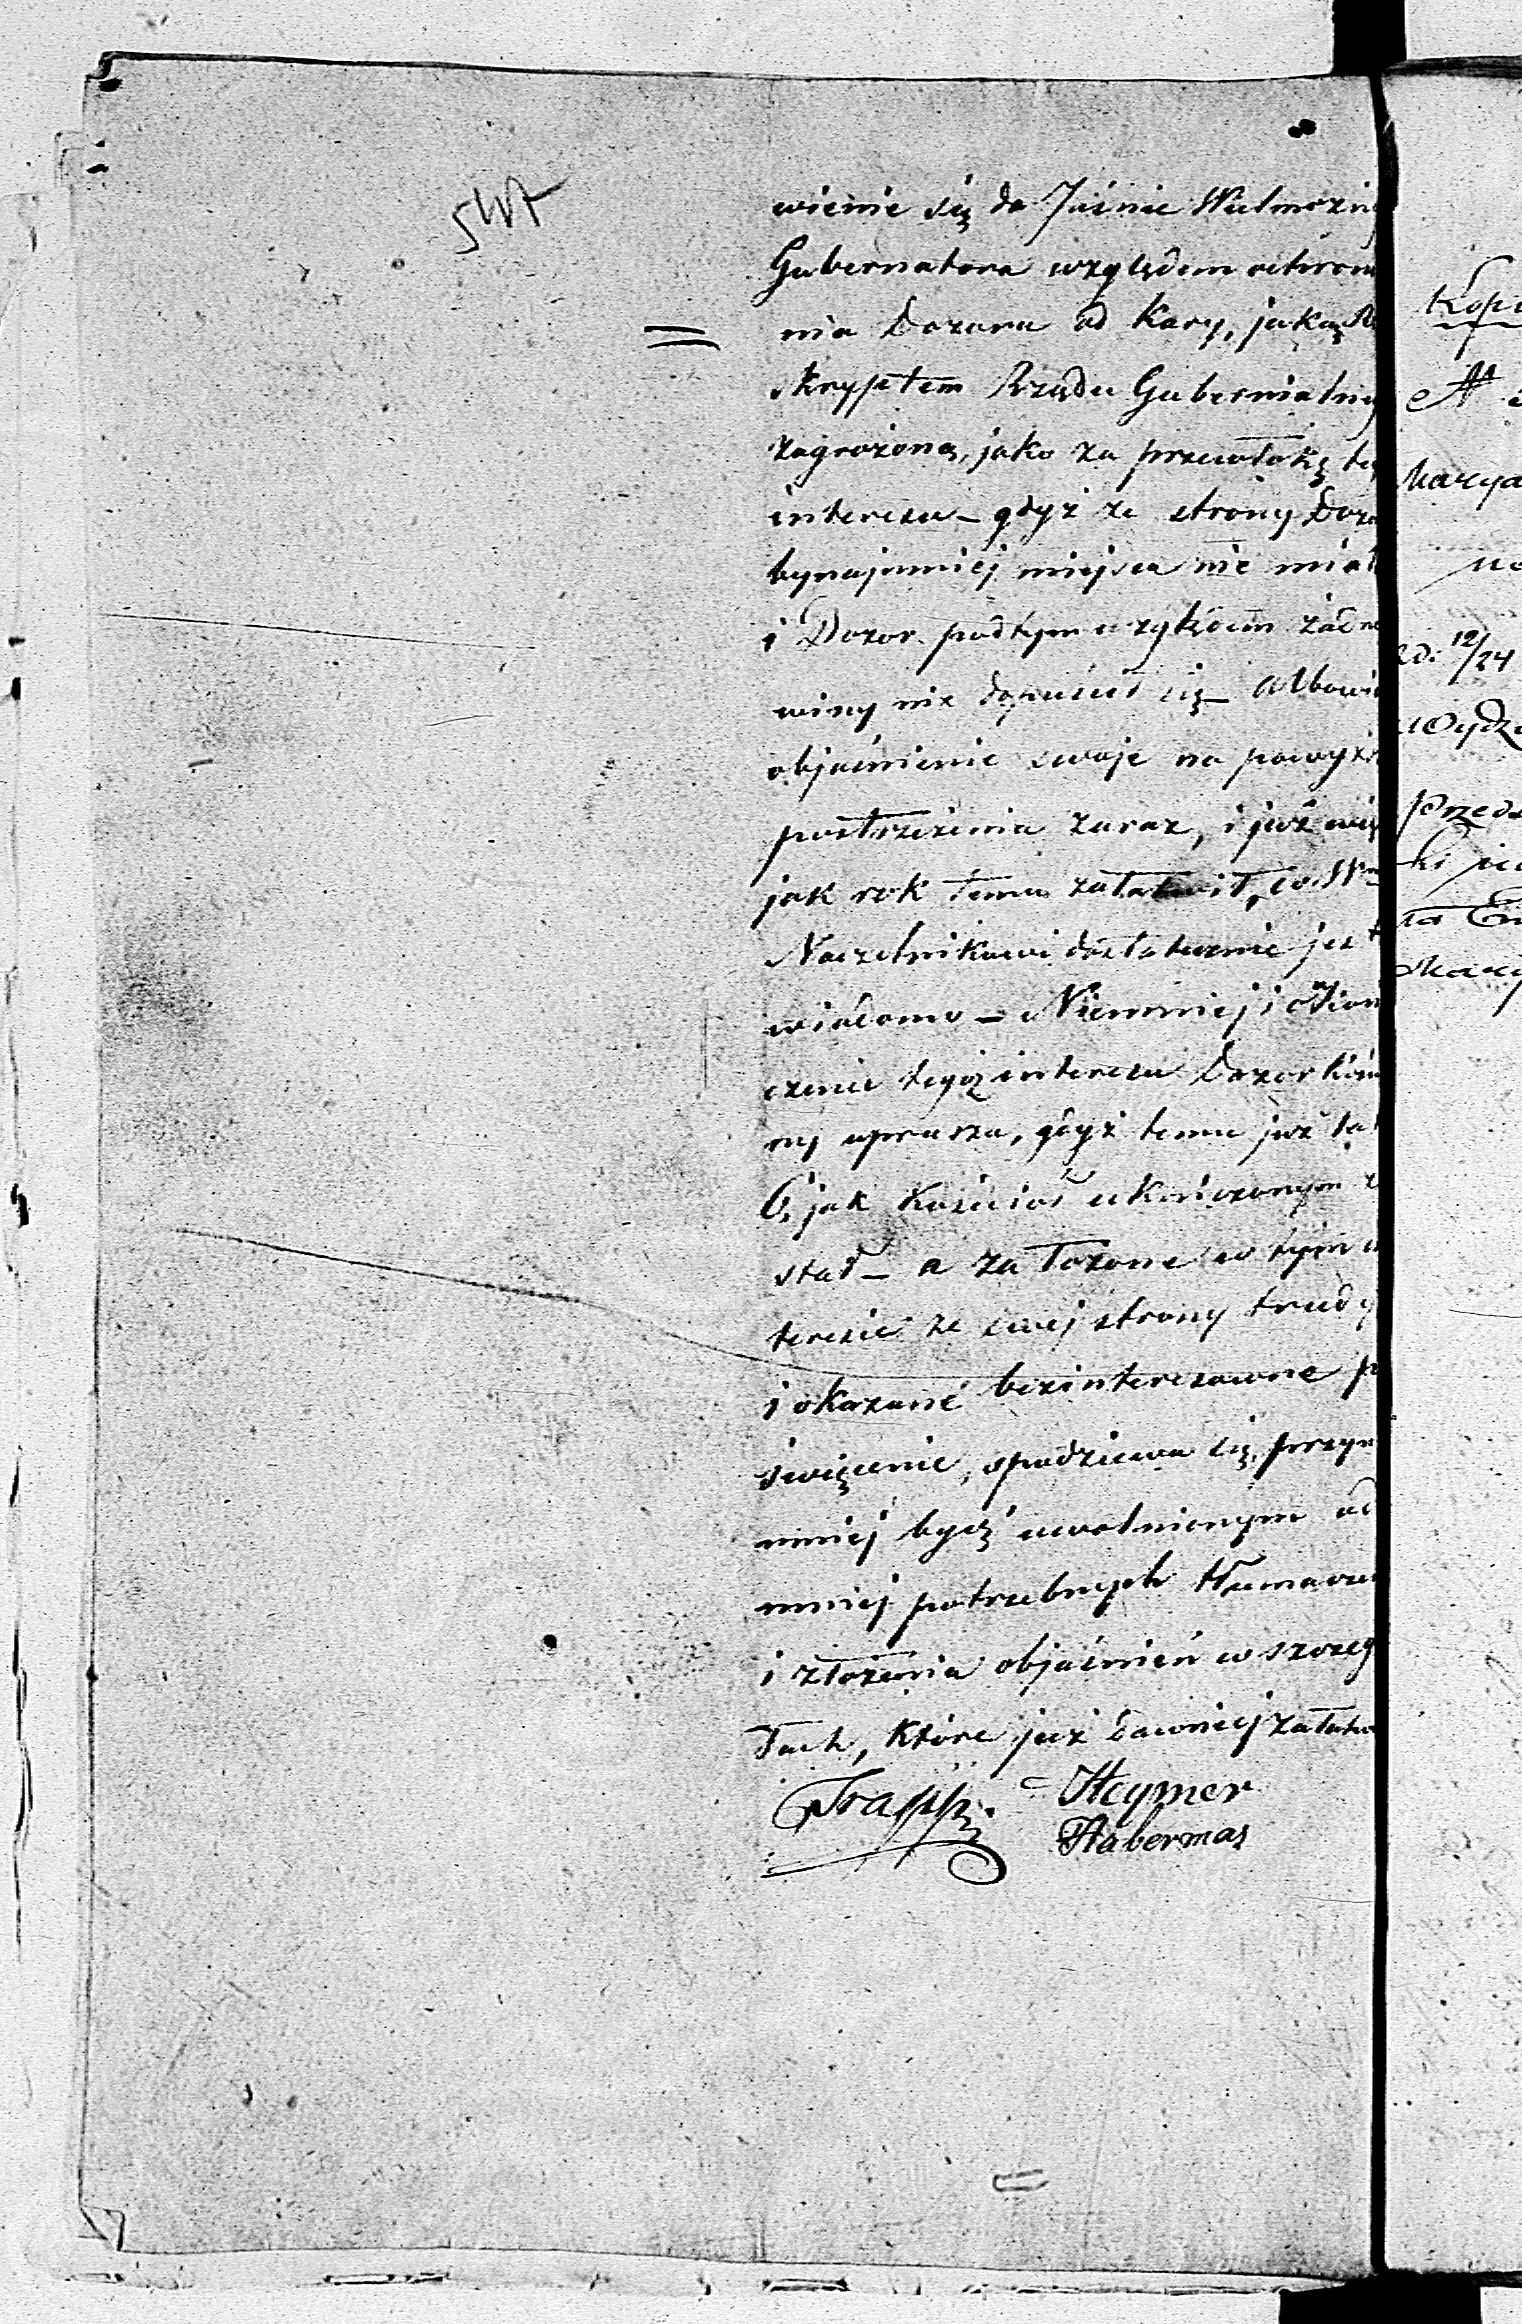 wienie się do Jaśnie Wielmożn
Gubernatora względem
nia Dozoru od Kary, jaką
skryptem Rządu Gubernialny
zagrożona, jako za przewłokę
interesu – gdyż ze strony Doz
bynajmniej miejsca nie miał
i Dozor pod tym względem żadn
winy nie dopuścił się – albowi
objaśnienie swoje na powyż
postrzeżenia zaraz, i już wię
jak rok temu załatwił, co
Naczelnikowi dostatecznie jest
wiadomo – Niemniej i
czenie tegoż interesu Dozor Kos
ny uprasza, gdyż temu już lat
6, jak Kościół ukończonym z
stał – a założone w tym in
teresie ze swej strony trudy
i okazane bezinteresowne p
święcenie, spodziewa się, przyn
mniej bydź uwolnionym od
mniej potrzebnych tłumacze
i złożenia objaśnień w szczeg
łach, które już dawniej załatw
Trapp Heymer
Habermas
Kopi
Marya
12/24
Przed